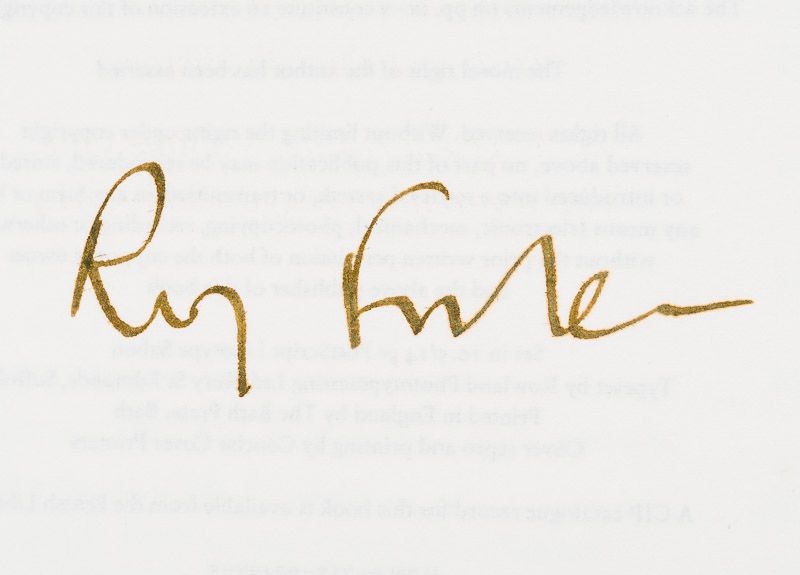 The acknowledgements on pp. constitute an extension of this copyright
The moral right of the author has been asserted
All rights reserved. Without limiting the rights under copyright
reserved above, no part of this publication may be reproduced, stored
or introduced into a retrieval system, or transmitted, in any form or
any means (electronic, mechanical, photocopying, recording or otherwise
without the prior written permission of both the copyright owner
and the above publisher of this book
Roy Foster
Set in PostScript Linotype Sabon
Typeset by Rowland Phototypesetting Ltd, Bury St Edmunds, Suffolk
Printed in England by The Bath Press, Bath
Cover repro and printing by Concise Cover Printers
A CIP catalogue record for this book is available from the British